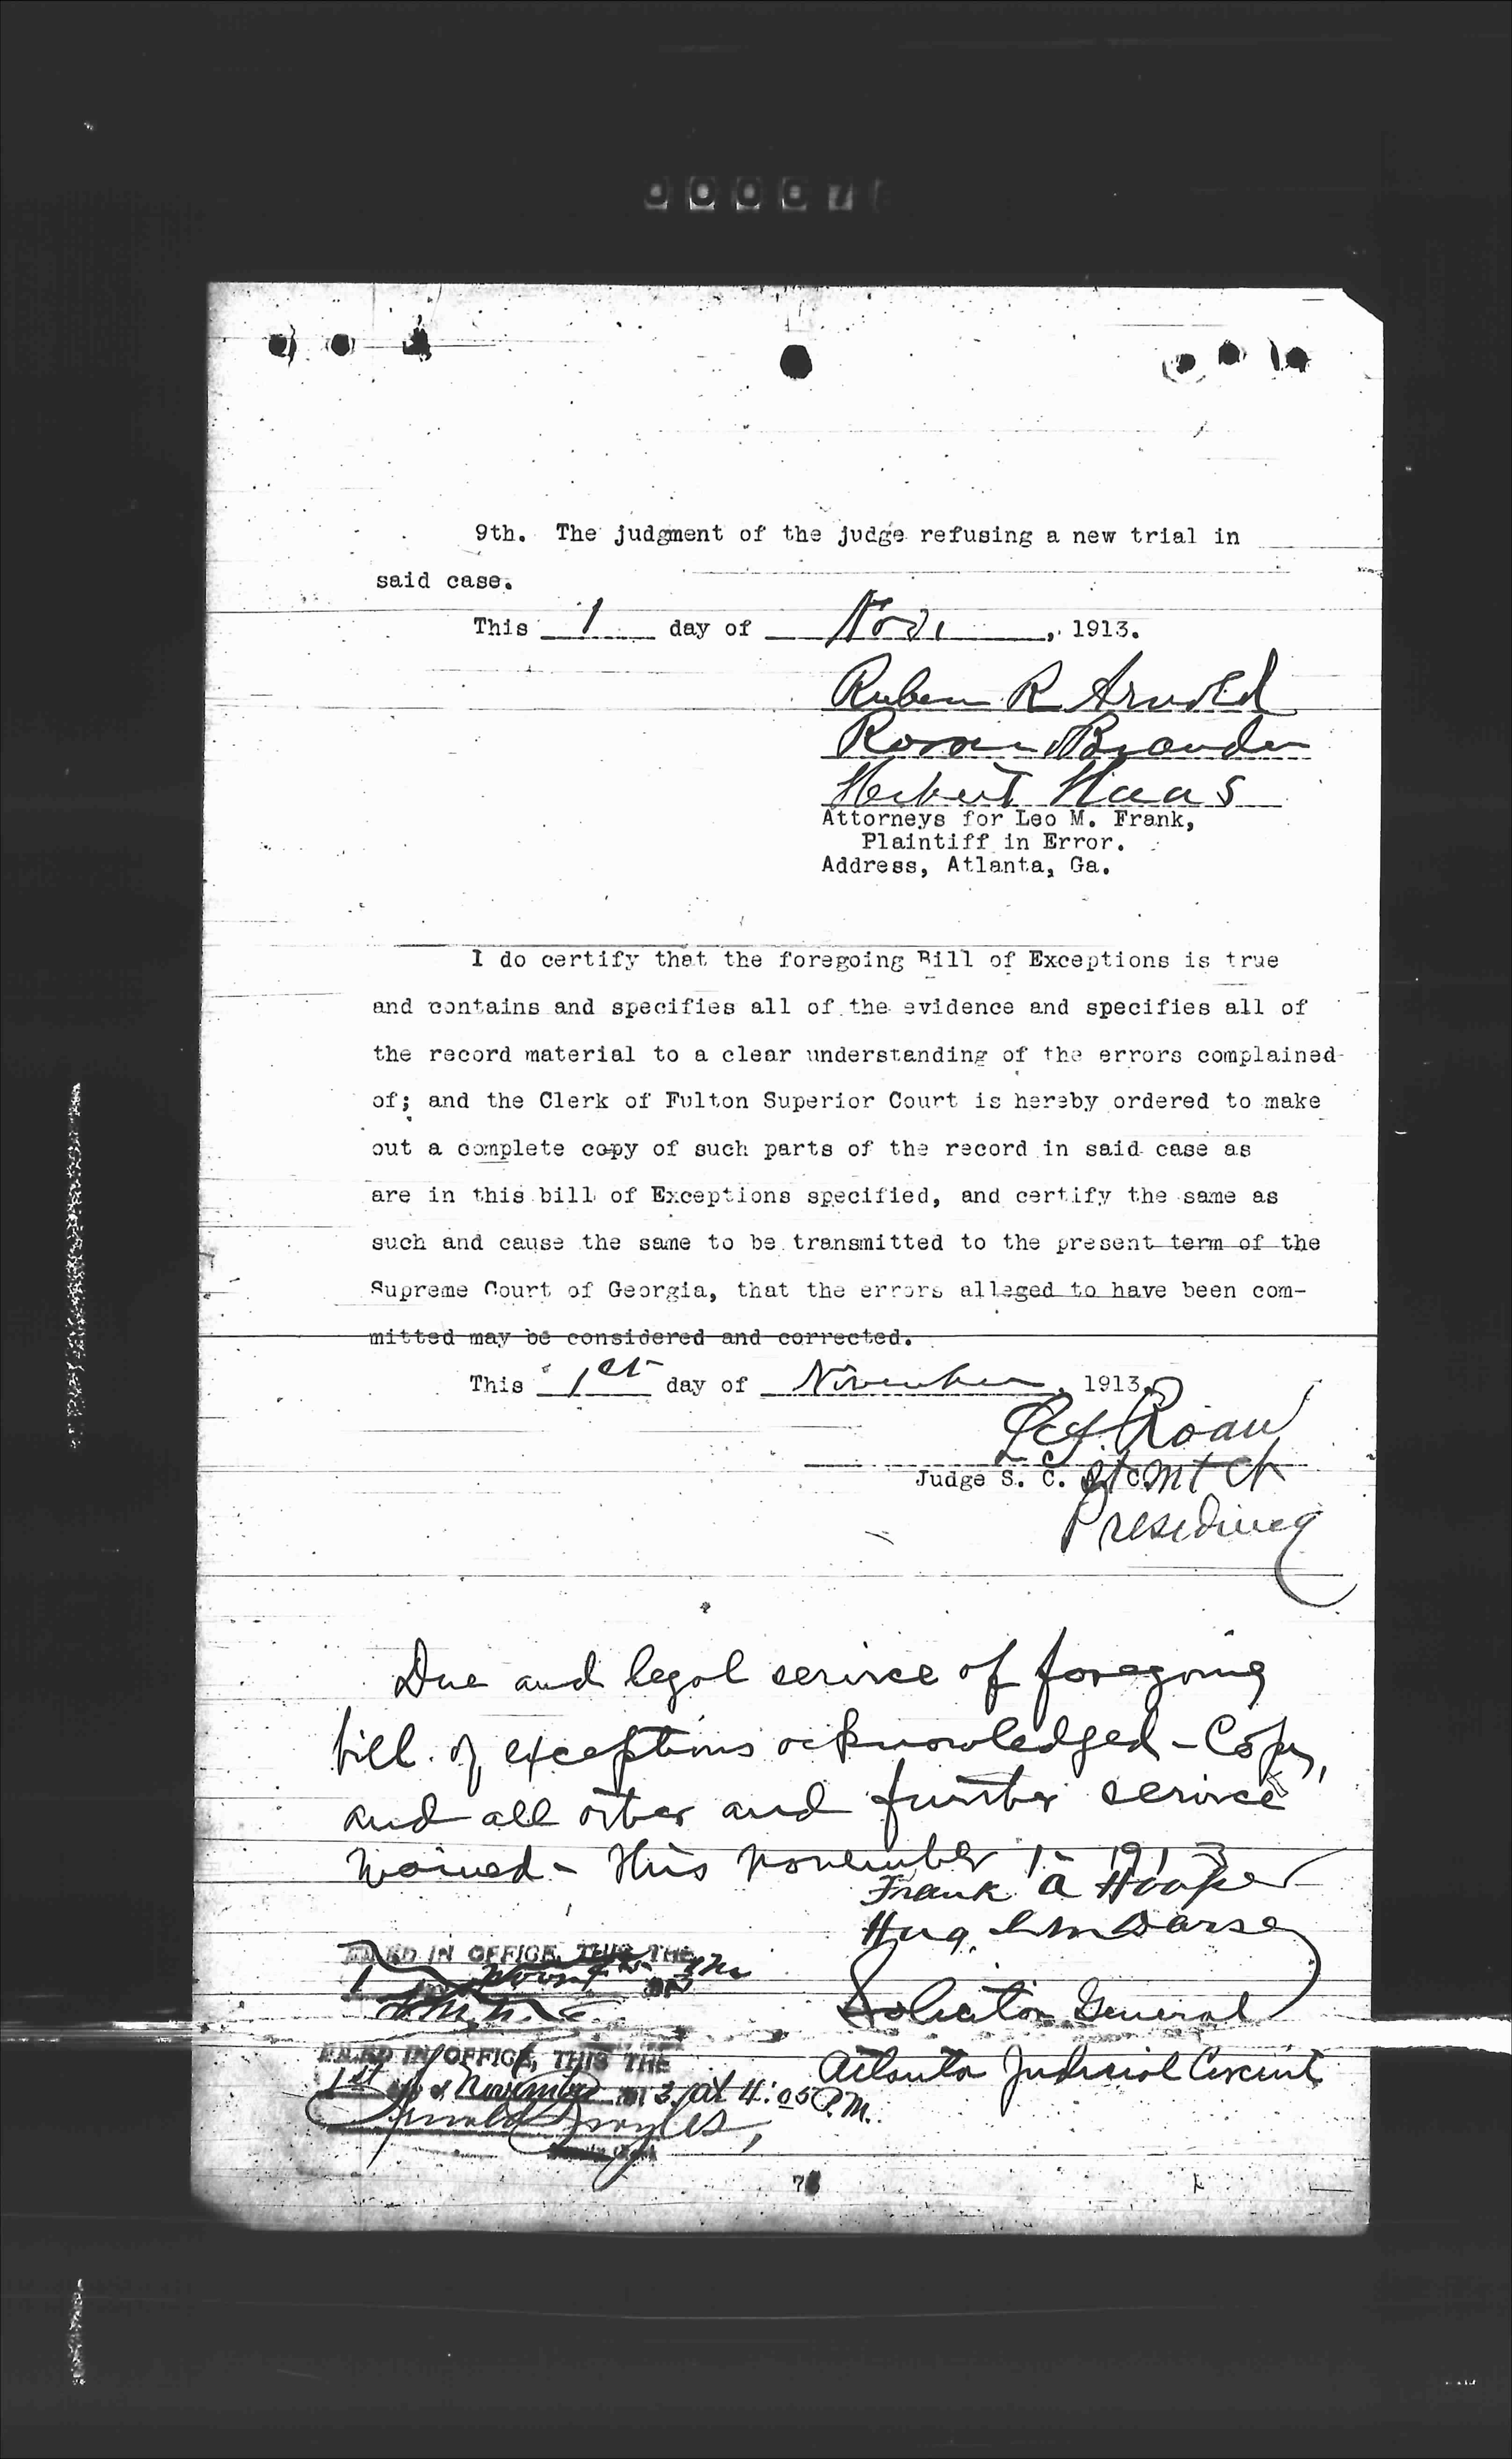 9th. The judgment of the judge refusing a new trial in
said case.
This 1 day of Nov. , 1913.
Ruben R Arnold
Rosser & Brandon
Herbert Haas
Attorneys for Leo M. Frank,
Plaintiff in Error.
Address, Atlanta, Ga.
I do certify that the foregoing Bill of Exceptions is true
and contains and specifies all of the evidence and specifies all of
the record material to a clear understanding of the errors complained
of; and the Clerk of Fulton Superior Court is hereby ordered to make
out a complete copy of such parts of the record in said case as
are in this bill of Exceptions specified, and certify the same as
such and cause the same to be transmitted to the present term of the
Supreme Court of Georgia, that the errors alleged to have been com-
mitted may be considered and corrected.
This 1st day of November, 1913.
L. S. Roan
Judge S. C. St Mt Ct
Presiding
Due and legal service of foregoing
bill of exceptions acknowledged - Copy,
and all other and further service
waived - This November 1- 1913
Frank A Hooper
Hugh M Dorsey
Solicitor General
Atlanta Judicial Circuit
FILED IN OFFICE, THIS THE
1
FILED IN OFFICE, THIS THE
1st day of November 1913, at 4:05 P.M.
Arnold Broyles,